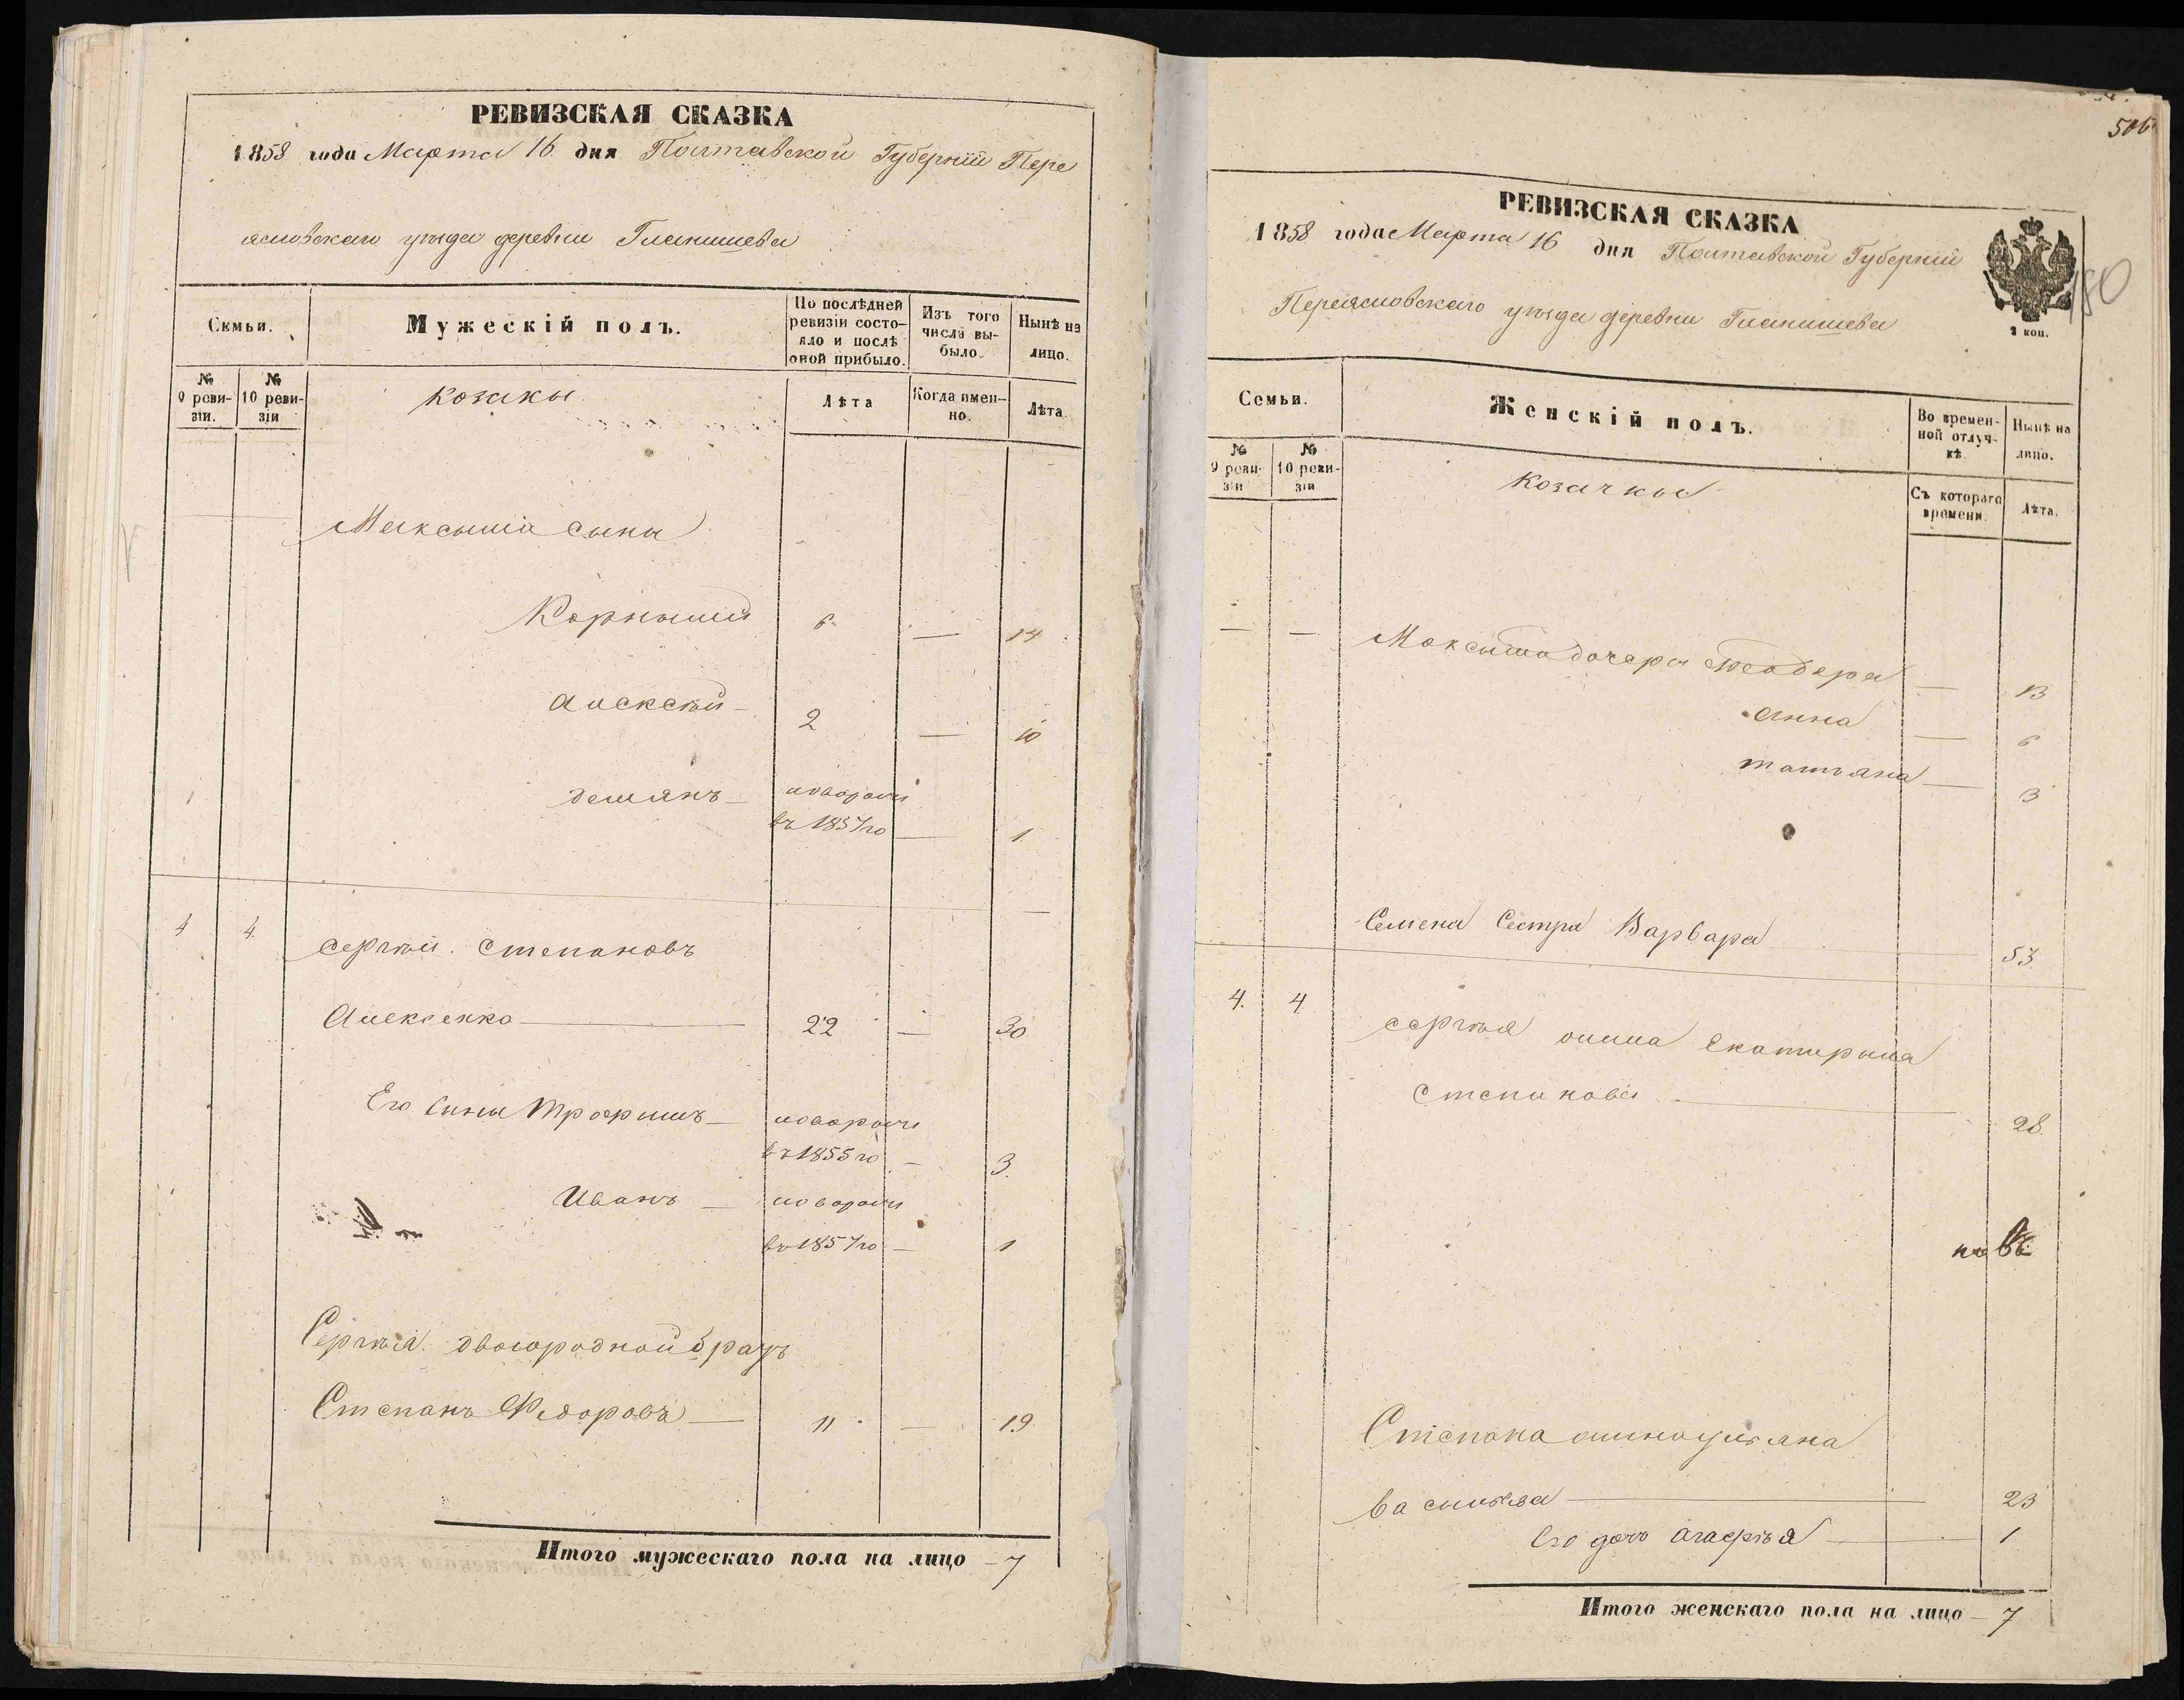 РЕВИЗСКАЯ СКАЗКА
1858 года Марта 16 дня Полтавской Губерніи Пере
яславскаго уѣзда деревни Гланишева
Семьи.
Мужескій полъ.
По послѣдней ревизіи состояло и послѣ оной прибыло.
Изъ того числа выбыло.
Нынѣ на лицо.
№ 9 ревизіи.
№ 10 ревизіи
козаки
Лѣта
Когда именно.
Лѣта.
Максыма сыны
Корнылий 6 — 14
Алексѣй — 2 — 10
Демянъ — новорож
въ 1857 го — 1
4 4. Сергѣй Степановъ
Алексенко — 22 — 30
Его сыны Трофимъ — новорож
въ 1855 го — 3.
Иванъ — новорож
въ 1857 го — 1
Сергѣя двоюродной братъ
Степанъ Федоровъ — 11 — 19
Итого мужескаго пола на лицо — 7
506
180
РЕВИЗСКАЯ СКАЗКА
1858 года Марта 16 дня Полтавской Губерніи
Переяславскаго уѣзда деревни Гланишева
2 коп.
Семьи.
Женскій полъ.
Во временной отлучкѣ.
Нынѣ на лицо.
№ 9 ревизіи
№ 10 ревизіи
козачкы
Съ котораго времени.
Лѣта.
— — Максыма дочеры Феодора — 13
Анна — 6
татьяна — 3
Семена Сестра Варвара — 53
4. 4 Сергѣя жина Екатирына
Степанова — 28.
Степана жина ульяна
Васильева — 23
Его дочь Агафья — 1
Итого женскаго пола на лицо — 7